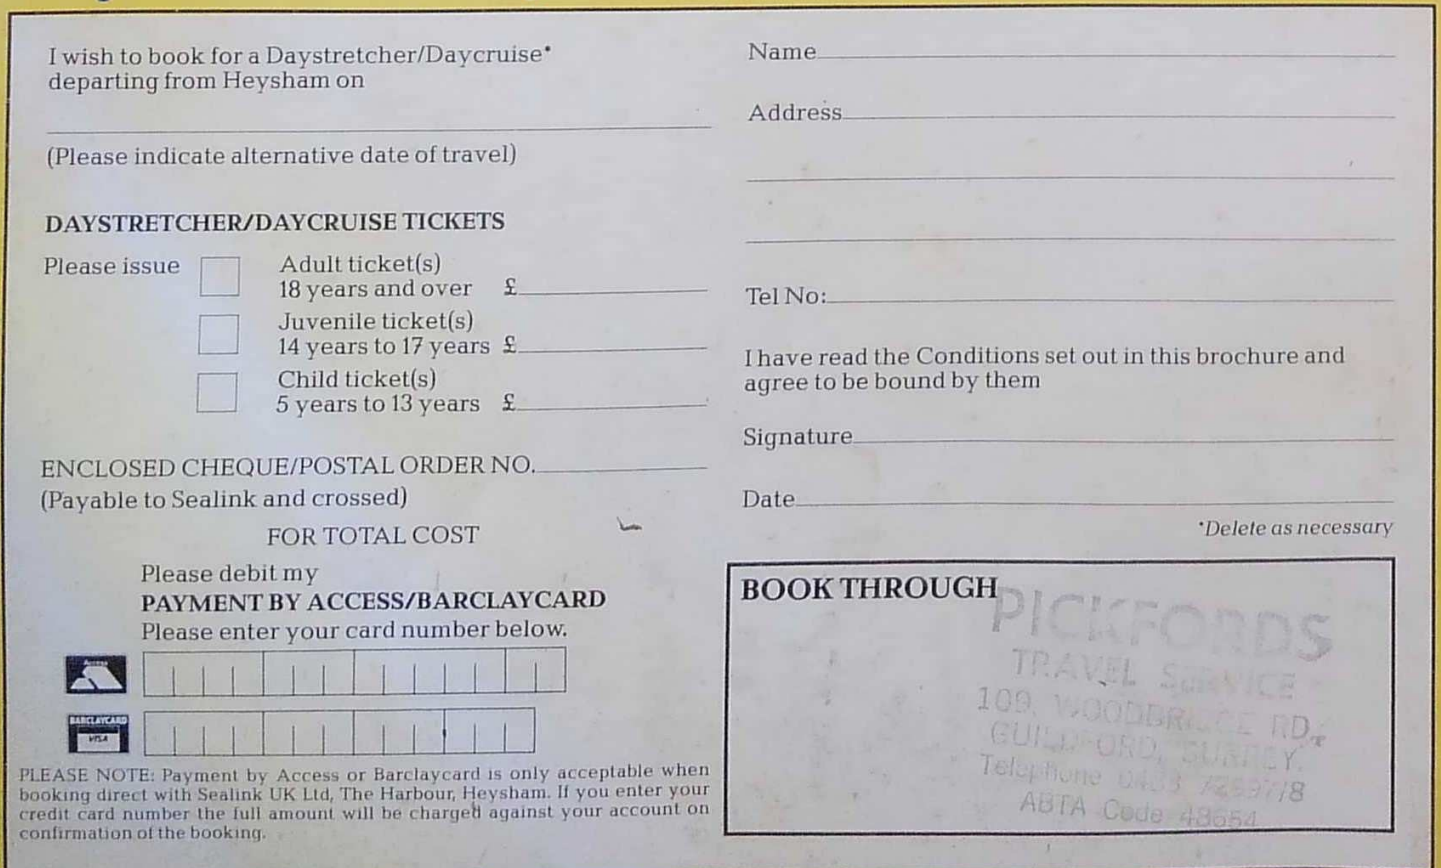 I wish to book for a Daystretcher/Daycruise*
departing from Heysham on
(Please indicate alternative date of travel)
DAYSTRETCHER/DAYCRUISE TICKETS
Please issue
Adult ticket(s)
18 years and over £
Juvenile ticket(s)
14 years to 17 years £
Child ticket(s)
5 years to 13 years £
ENCLOSED CHEQUE/POSTAL ORDER NO.
(Payable to Sealink and crossed)
FOR TOTAL COST
Please debit my
PAYMENT BY ACCESS/BARCLAYCARD
Please enter your card number below.
Access
BARCLAYCARD
VISA
PLEASE NOTE: Payment by Access or Barclaycard is only acceptable when
booking direct with Sealink UK Ltd, The Harbour, Heysham. If you enter your
credit card number the full amount will be charged against your account on
confirmation of the booking.
Name
Address
Tel No:
I have read the Conditions set out in this brochure and
agree to be bound by them
Signature
Date
*Delete as necessary
BOOK THROUGH
PICKFORDS
TRAVEL SERVICE
109, WOODBRIDGE RD.,
GUILDFORD, SURREY.
Telephone 0483
ABTA Code